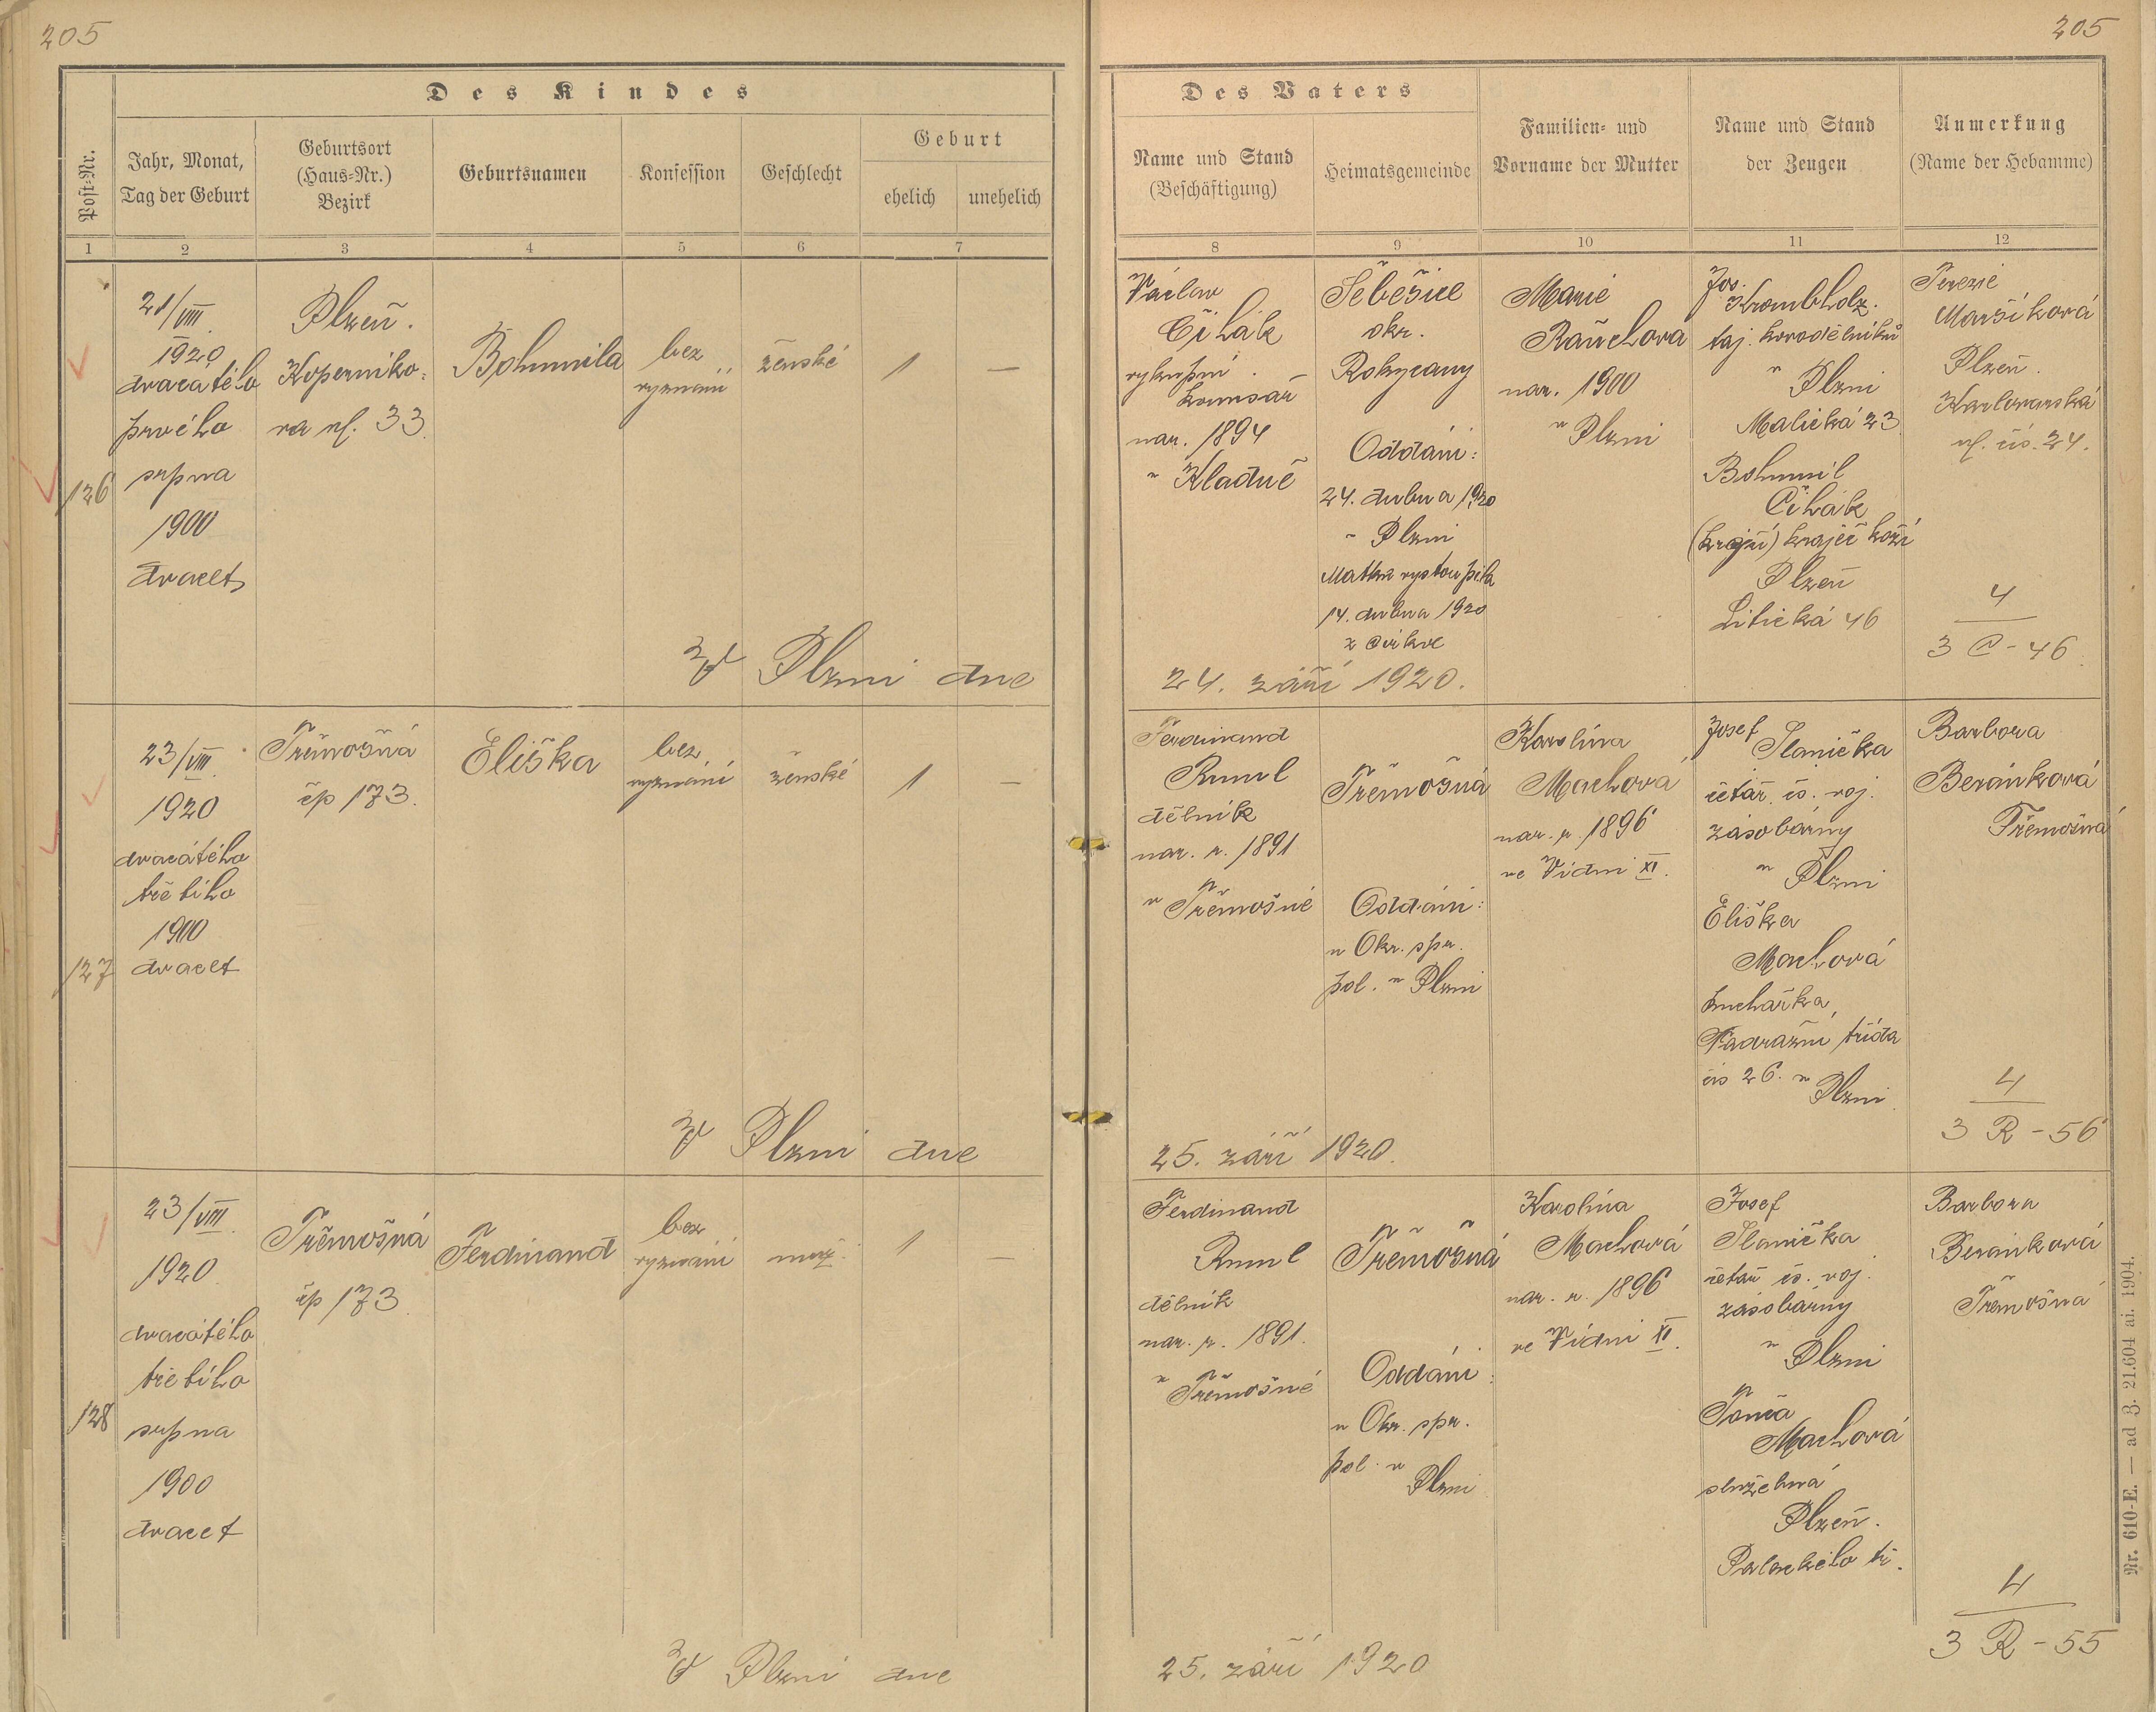 205
205
Des Kindes
Post-Nr.
Jahr, Monat,
Tag der Geburt
Geburtsort
(Haus-Nr.)
Bezirk
Geburtsnamen
Konfession
Geschlecht
Geburt
ehelich
unehelich
Des Vaters
Name und Stand
(Beschäftigung)
Heimatsgemeinde
Familien- und
Vorname der Mutter
Name und Stand
der Zeugen
Anmerkung
(Name der Hebamme)
1
2
3
4
5
6
7
8
9
10
11
12
126
21/VIII.
1920
dvacátého
prvého
srpna
1900
dvacet
Plzeň.
Koperniko-
va ul. 33.
Bohumila
bez
vyznání
ženské
1
—
Václav
Čihák
výkupní
komisař
nar. 1894
v Kladně
Šebešice
okr.
Rokycany
Oddáni:
24. dubna 1920
v Plzni
Matka vystoupila
14. dubna 1920
z církve
Marie
Rauchová
nar. 1900
v Plzni
Jos.
Krombholz.
taj. kovodělníků
v Plzni
Malická 23
Bohumil
Čihák
(krejčí) kraječ koží
Plzeň
Litická 46
Terezie
Maršíková
Plzeň.
Karlovarská
ul. čís. 24.
4
3 Č - 46.
V Plzni dne
24. září 1920.
127
23/VIII.
1920
dvacátého
třetího
1900
dvacet
Třemošná
čp 173.
Eliška
bez
vyznání
ženské
1
—
Ferdinand
Ruml
dělník
nar. r. 1891
v Třemošné
Třemošná
Oddáni:
u Okr. spr.
pol. v Plzni
Karolina
Machová
nar. r. 1896
ve Vídni XI.
Josef
Slanička
četař čs. voj.
zásobárny
v Plzni
Eliška
Machová
kuchařka,
Nádražní třída
čís 26. v Plzni
Barbora
Beránková
Třemošná
4
3 R - 56
V Plzni dne
25. září 1920.
128
23/VIII.
1920
dvacátého
třetího
srpna
1900
dvacet
Třemošná
čp 173.
Ferdinand
bez
vyznání
muž.
1
—
Ferdinand
Ruml
dělník
nar. r. 1891.
v Třemošné
Třemošná
Oddáni:
u Okr. spr.
pol. v
Plzni
Karolina
Machová
nar. r. 1896
ve Vídni XI.
Josef
Slanička
četař čs. voj.
zásobárny
v Plzni
Machová
služebná
Plzeň.
Palackého tř.
Barbora
Beránková
Třemošná
4
3 R - 55
V Plzni dne
25. září 1920
Nr. 610-E. — ad Z. 21.604 ai. 1904.